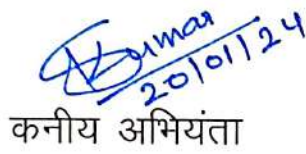 Kumar
20/01/24
कनीय अभियंता